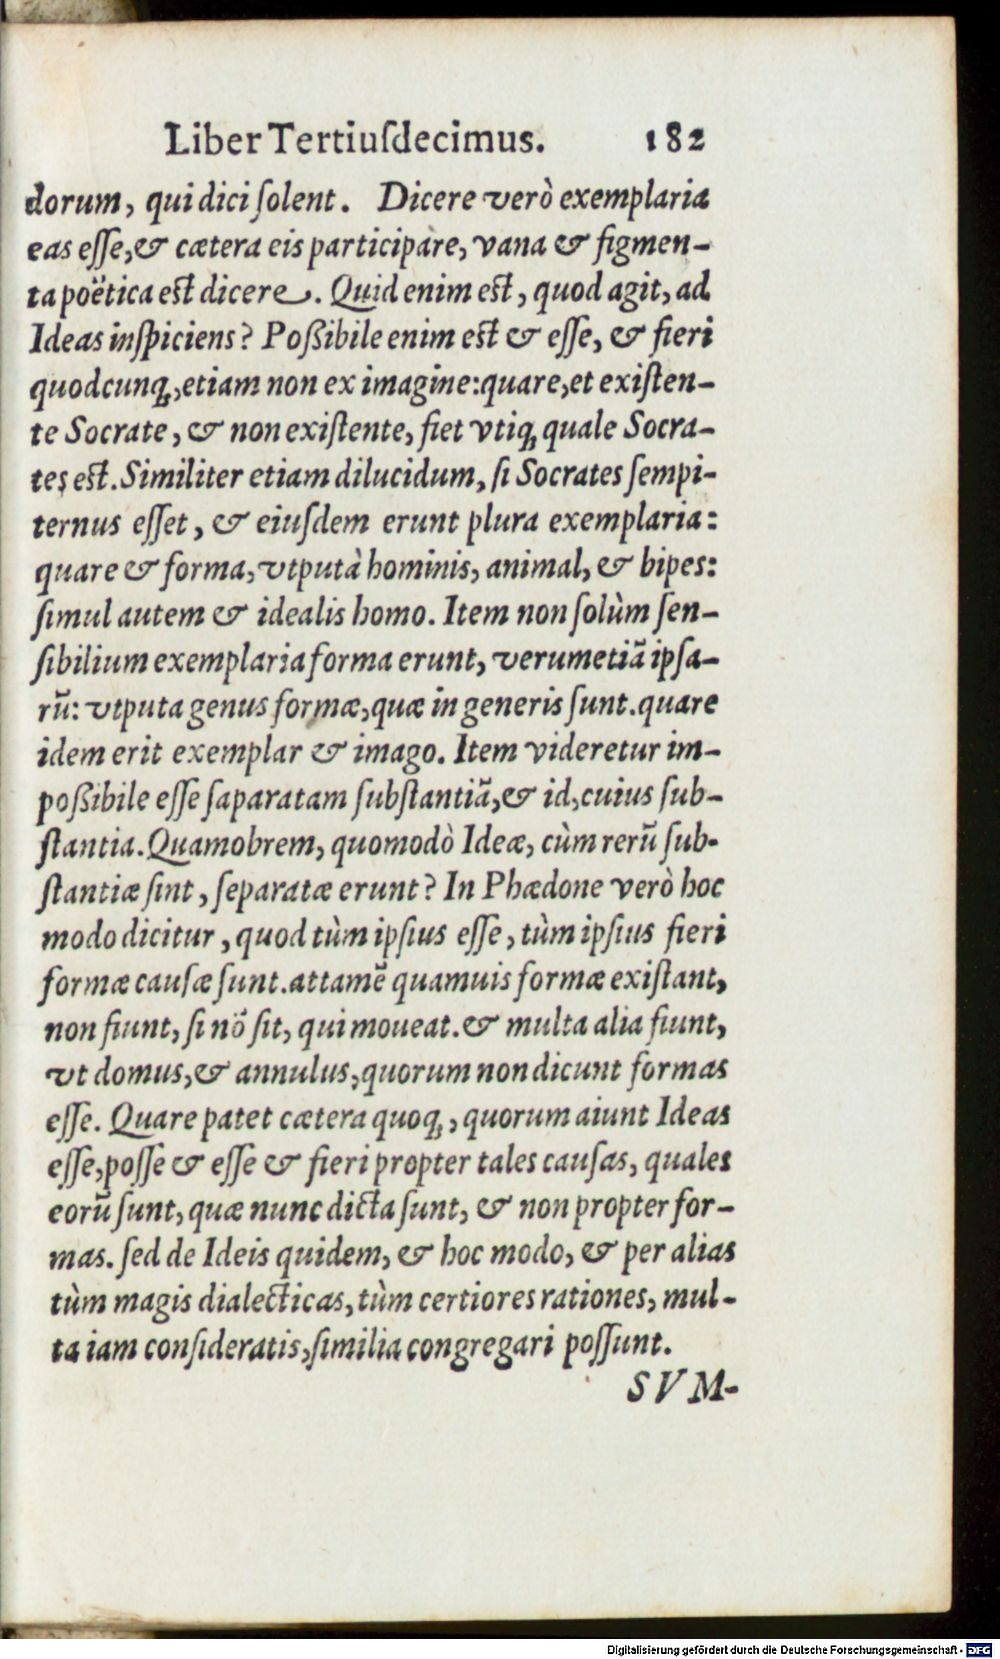 Liber Tertiuſdecimus. 182
dorum, qui dici ſolent. Dicere verò exemplaria
eas eſſe,& cætera eis participare, vana & figmen-
ta poëtica est dicere. Quid enim est, quod agit, ad
Ideas inſpiciens? Poßibile enim est & eſſe, & fieri
quodcunq́;,etiam non ex imagine:quare,et exiſten-
te Socrate, & non exiſtente, fiet vtiq́; quale Socra-
tes est. Similiter etiam dilucidum, ſi Socrates ſempi-
ternus eſſet, & eiuſdem erunt plura exemplaria:
quare & forma, vtputà hominis, animal, & bipes:
ſimul autem & idealis homo. Item non ſolùm ſen-
ſibilium exemplaria forma erunt, verumetiã ipſa-
rũ: vtputa genus formæ,quæ in generis ſunt.quare
idem erit exemplar & imago. Item videretur im-
poßibile eſſe ſaparatam ſubſtantiã,& id,cuius ſub-
ſtantia. Quamobrem, quomodò Ideæ, cùm rerũ ſub-
ſtantiæ ſint, ſeparatæ erunt? In Phædone verò hoc
modo dicitur, quod tùm ipſius eſſe, tùm ipſius fieri
formæ cauſæ ſunt.attamẽ quamuis formæ exiſtant,
non fiunt, ſi nõ ſit, qui moueat.& multa alia fiunt,
vt domus,& annulus,quorum non dicunt formas
eſſe. Quare patet cætera quoq́;, quorum aiunt Ideas
eſſe,poſſe & eſſe & fieri propter tales cauſas, quales
eorũ ſunt, quæ nunc dicta ſunt, & non propter for-
mas. ſed de Ideis quidem, & hoc modo, & per alias
tùm magis dialecticas, tùm certiores rationes, mul-
ta iam conſideratis,ſimilia congregari poſſunt.
SVM-
Digitalisierung gefördert durch die Deutsche Forschungsgemeinschaft - DFG